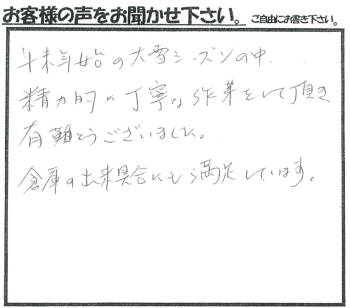 お客様の声をお聞かせ下さい。ご自由にお書き下さい。
年末年始の大雪シーズンの中
精力的に丁寧な作業をして頂き
有難とうございました。
倉庫の出来具合にも満足しています。